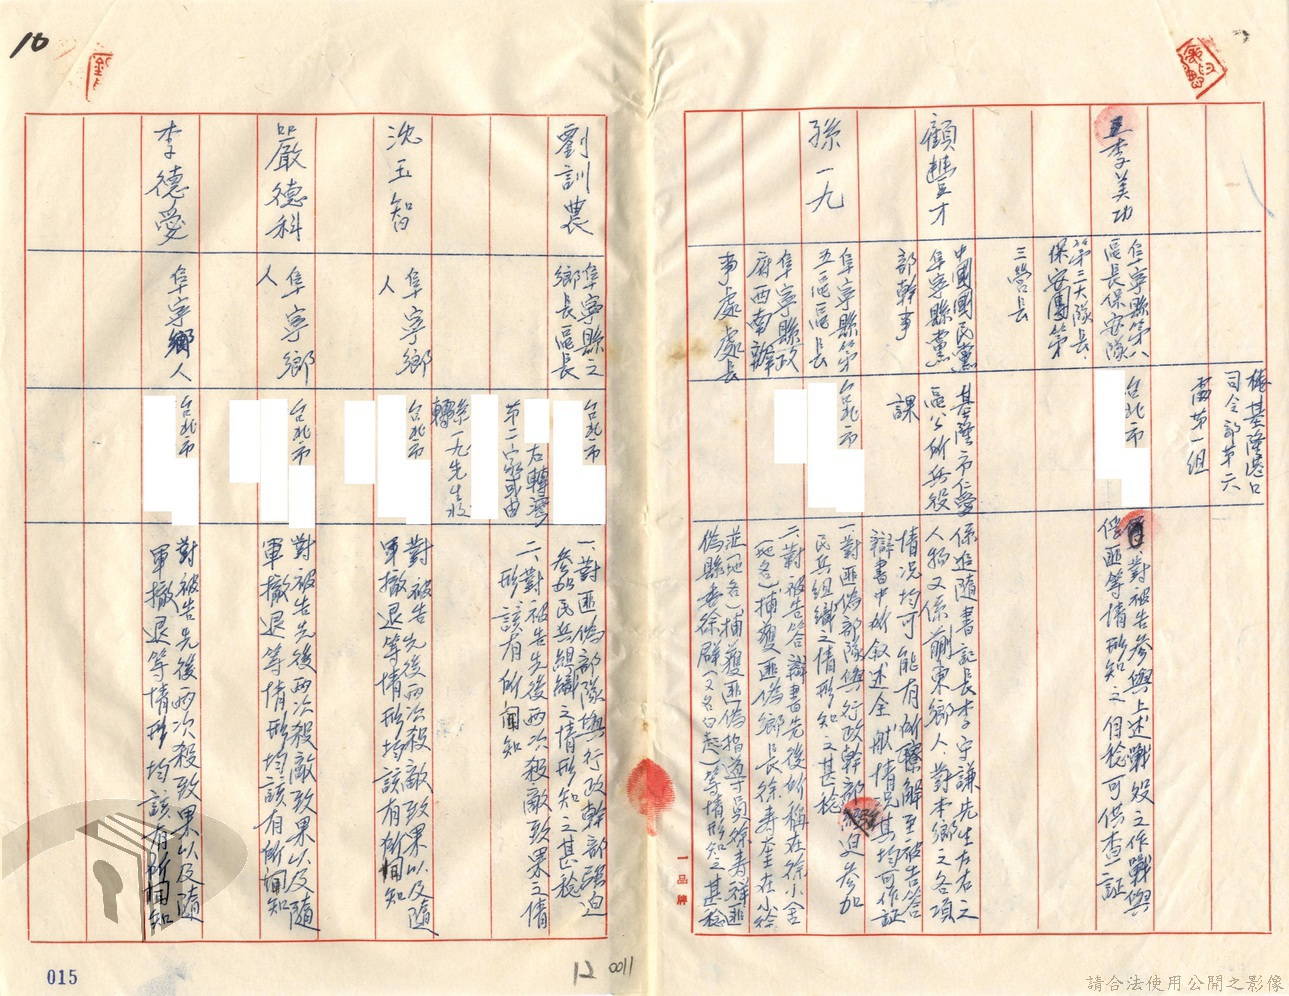 16
桃基隆港口
司令部第六
留第一組
李美功
阜寧縣第八
區長保安隊
第二大隊長
保安團第
三營長
台北市
對被告參與上述戰役之作戰與
俘匪等情形知之甚稔可供查證
顧豐才
中國國民黨
阜寧縣黨
部幹事
基隆市仁愛
區公所兵役
課
係追隨書記長李守謙先生左右之
人物又係蒯東鄉人對本鄉之各項
情況均可能有所瞭解至被告答
辯書中所叙述全般情況其均可作証
孫一九
阜寧縣第
五區區長
阜寧縣政
府西南辦
事處處長
台北市
一對匪偽部隊與行政幹部強迫參加
民兵組織之情形知之甚稔
二對被告答辯書先後所稱在徐小舍
(地名)捕獲匪偽鄉長徐壽奎在小徐
莊(地名)捕獲匪偽指導員徐壽祥匪
偽縣委徐群(又名白起)等情形知之甚稔
一品牌
劉訓農
阜寧縣之
鄉長區長
台北市
右轉灣
第二家或由
孫一九先生收
轉
一對匪偽部隊與行政幹部強迫
參加民兵組織之情形知之甚稔
二對被告先後兩次殺敵致果之情
形該有所聞知
沈玉智
阜寧鄉
人
台北市
對被告先後兩次殺敵致果以及隨
軍撤退等情形均該有所聞知
嚴德科
阜寧鄉
人
台北市
對被告先後兩次殺敵致果以及隨
軍撤退等情形均該有所聞知
李德愛
阜寧鄉人
台北市
對被告先後兩次殺敵致果以及隨
軍撤退等情形均該有所聞知
015
12
0011
請合法使用公開之影像